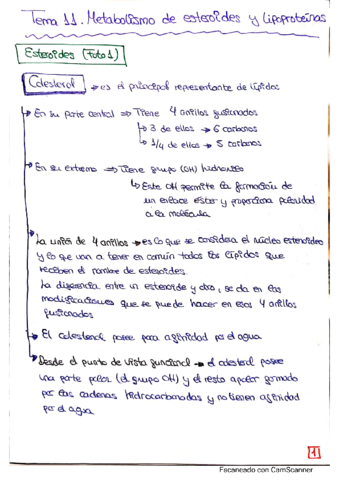 Tema 11. Metabolismo de esteroides y lipoproteínas
Esteroides (Foto 1)
Colesterol → es el principal representante de lípidos
→ En su parte central ⇒ Tiene 4 anillos fusionados
↳ 3 de ellos → 6 carbonos
↳ 1/4 de ellos → 5 carbonos
→ En su extremo ⇒ Tiene grupo (OH) hidroxilo
↳ Este OH permite la formación de
un enlace ester y proporciona polaridad
a la molécula
La unión de 4 anillos → es lo que se considera el núcleo esteroideo
y lo que van a tener en común todos los lípidos que
reciben el nombre de esteroides.
La diferencia entre un esteroide y otro, se da en las
modificaciones que se puede hacer en esos 4 anillos
fusionados
→ El colesterol posee poca afinidad por el agua
→ Desde el punto de vista funcional → el colesterol posee
una parte polar (el grupo OH) y el resto apolar formado
por las cadenas hidrocarbonadas y no tienen afinidad
por el agua
1
Escaneado con CamScanner